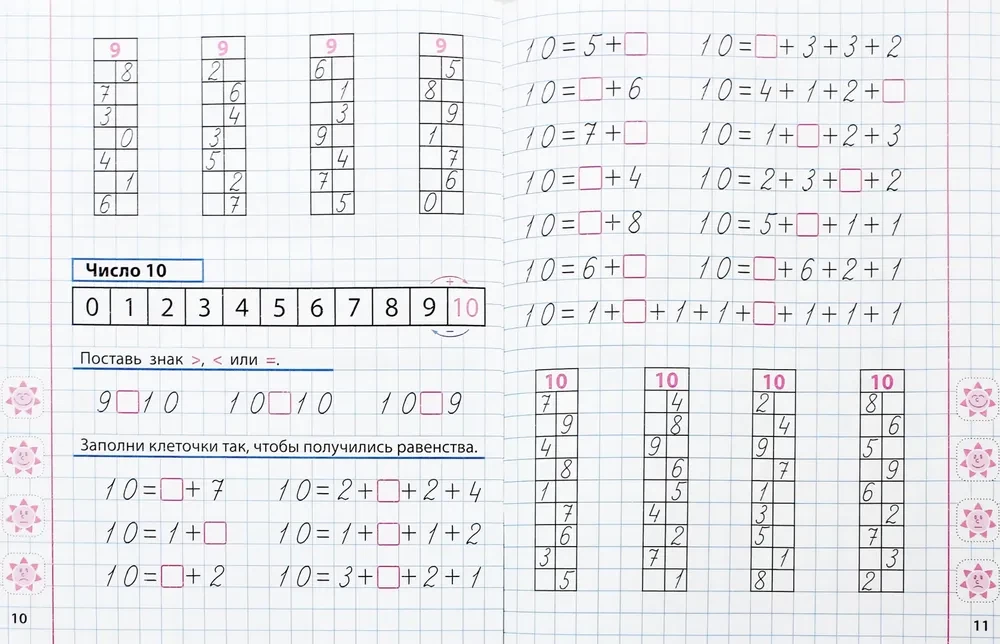 9 9 9 9
8 2 6 5
7 6 1 8
3 4 3 9
0 3 9 1
4 5 4 7
1 2 7 6
6 7 5 0
Число 10
+
0 1 2 3 4 5 6 7 8 9 10
−
Поставь знак >, < или =.
9□10 10□10 10□9
Заполни клеточки так, чтобы получились равенства.
10=□+7 10=2+□+2+4
10=1+□ 10=1+□+1+2
10=□+2 10=3+□+2+1
10
10=5+□ 10=□+3+3+2
10=□+6 10=4+1+2+□
10=7+□ 10=1+□+2+3
10=□+4 10=2+3+□+2
10=□+8 10=5+□+1+1
10=6+□ 10=□+6+2+1
10=1+□+1+1+□+1+1+1
10 10 10 10
7 4 2 8
9 8 4 6
4 9 9 5
8 6 7 9
1 5 1 6
7 4 3 2
6 2 5 7
3 7 1 3
5 1 8 2
11